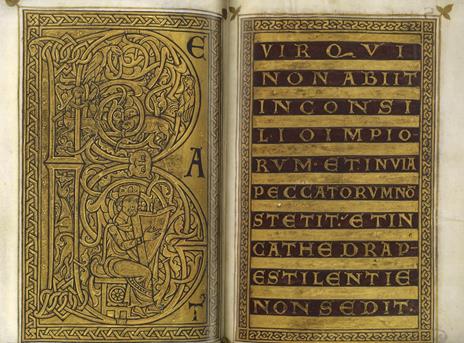 B
E
A
T
VIR QVI
NON ABIIT
IN CONSI
LIO IMPIO-
RVM· ET IN VIA
PECCATORVM NŌ
STETIT· ET IN
CATHEDRA P
ESTILENTIE
NON SEDIT·